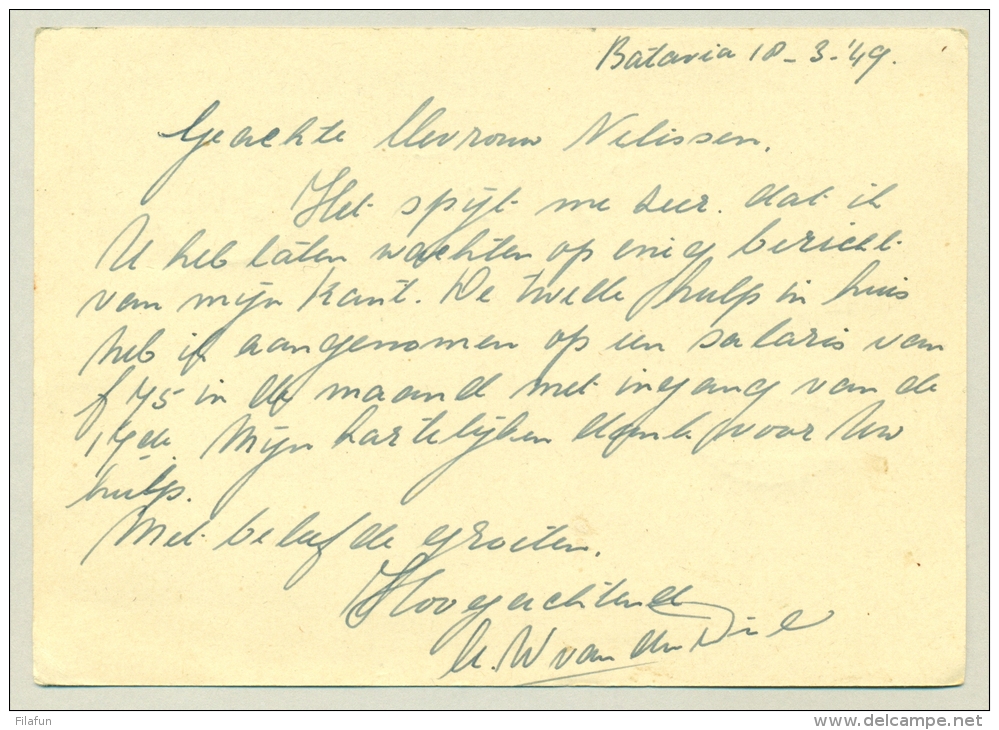 Batavia 18-3-'49.
Geachte Mevrouw Nelissen.
Het spijt me zeer. dat ik
U heb laten wachten op enig bericht
van mijn kant. De tweede hulp in huis
heb ik aangenomen op een salaris van
f 75 in de maand met ingang van de
17de. Mijn hartelijken dank voor Uw
hulp.
Met beleefde groeten.
Hoogachtend
W van der
Filafun
www.delcampe.net